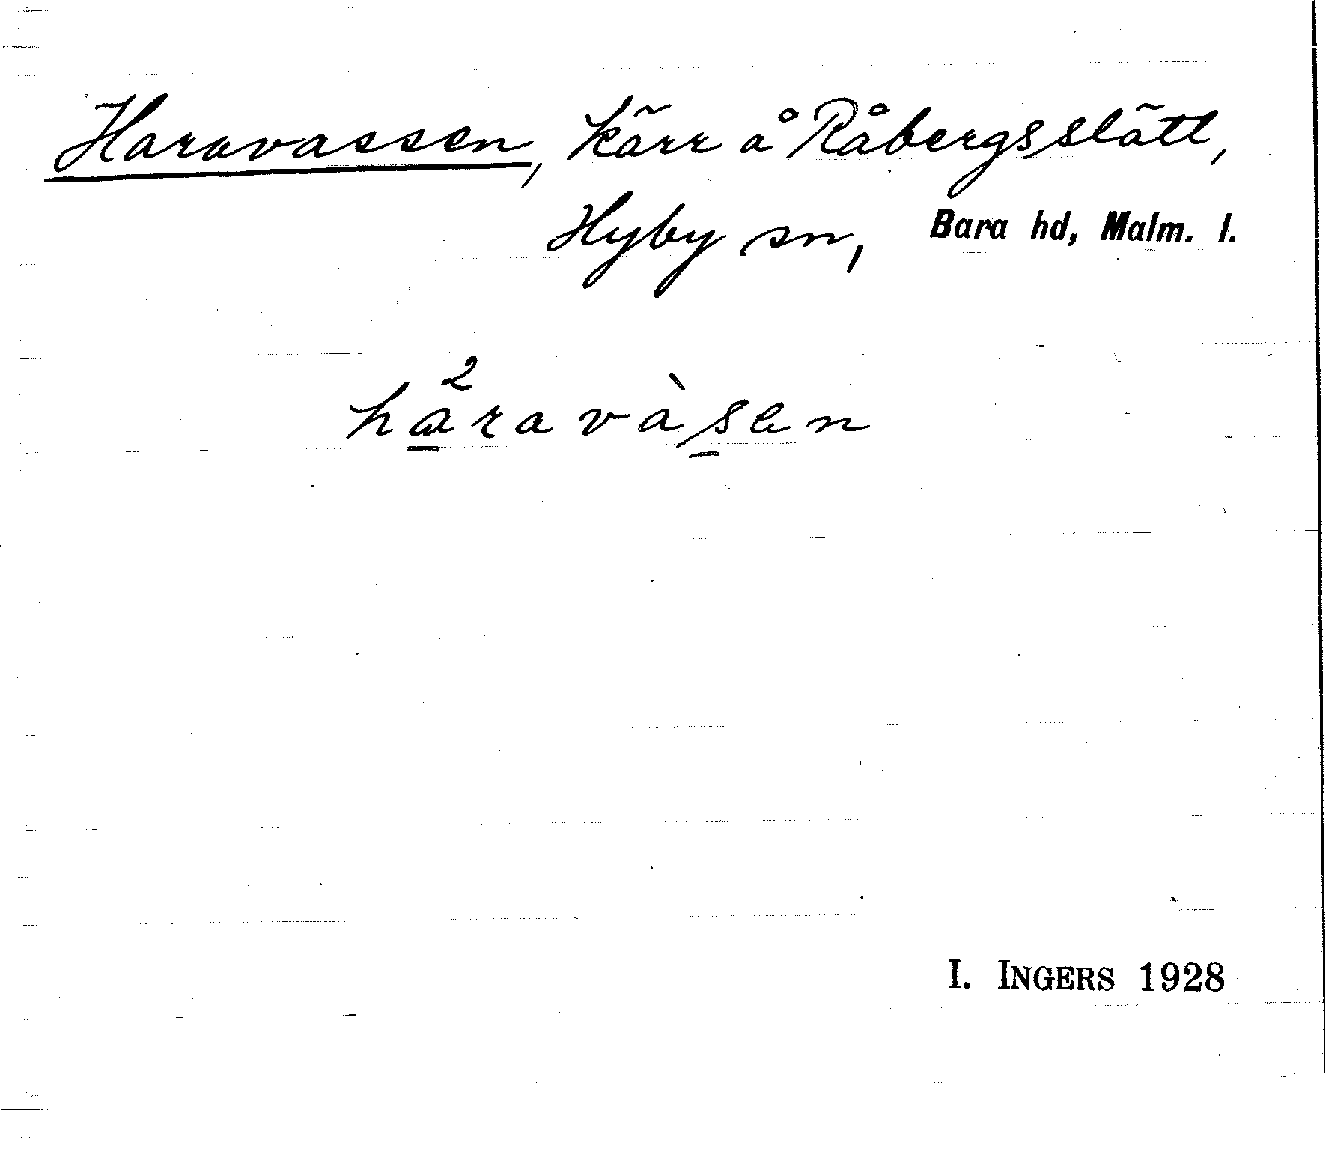 Haravassen, kärr å Råbergsslätt,
Hyby sn, Bara hd, Malm. l.
hå̱²ravàs̱en
I. INGERS 1928